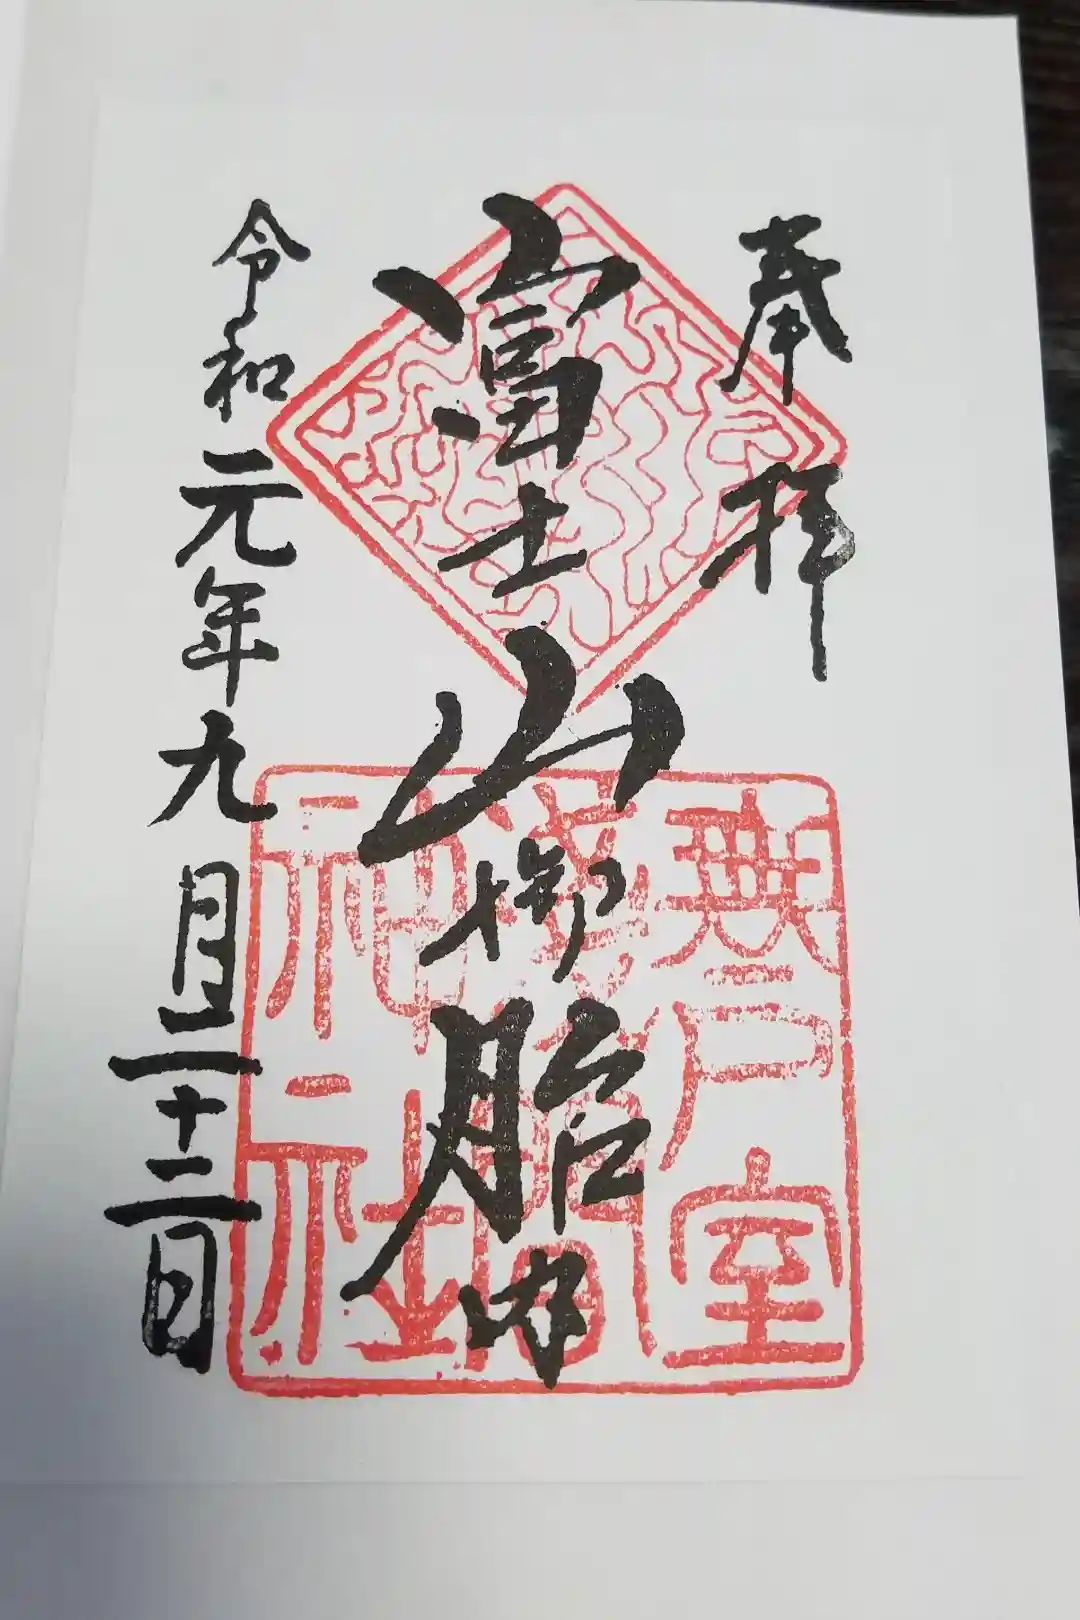 奉拝
富士山御胎内
令和元年九月二十二日
無戸室
淺間
神社